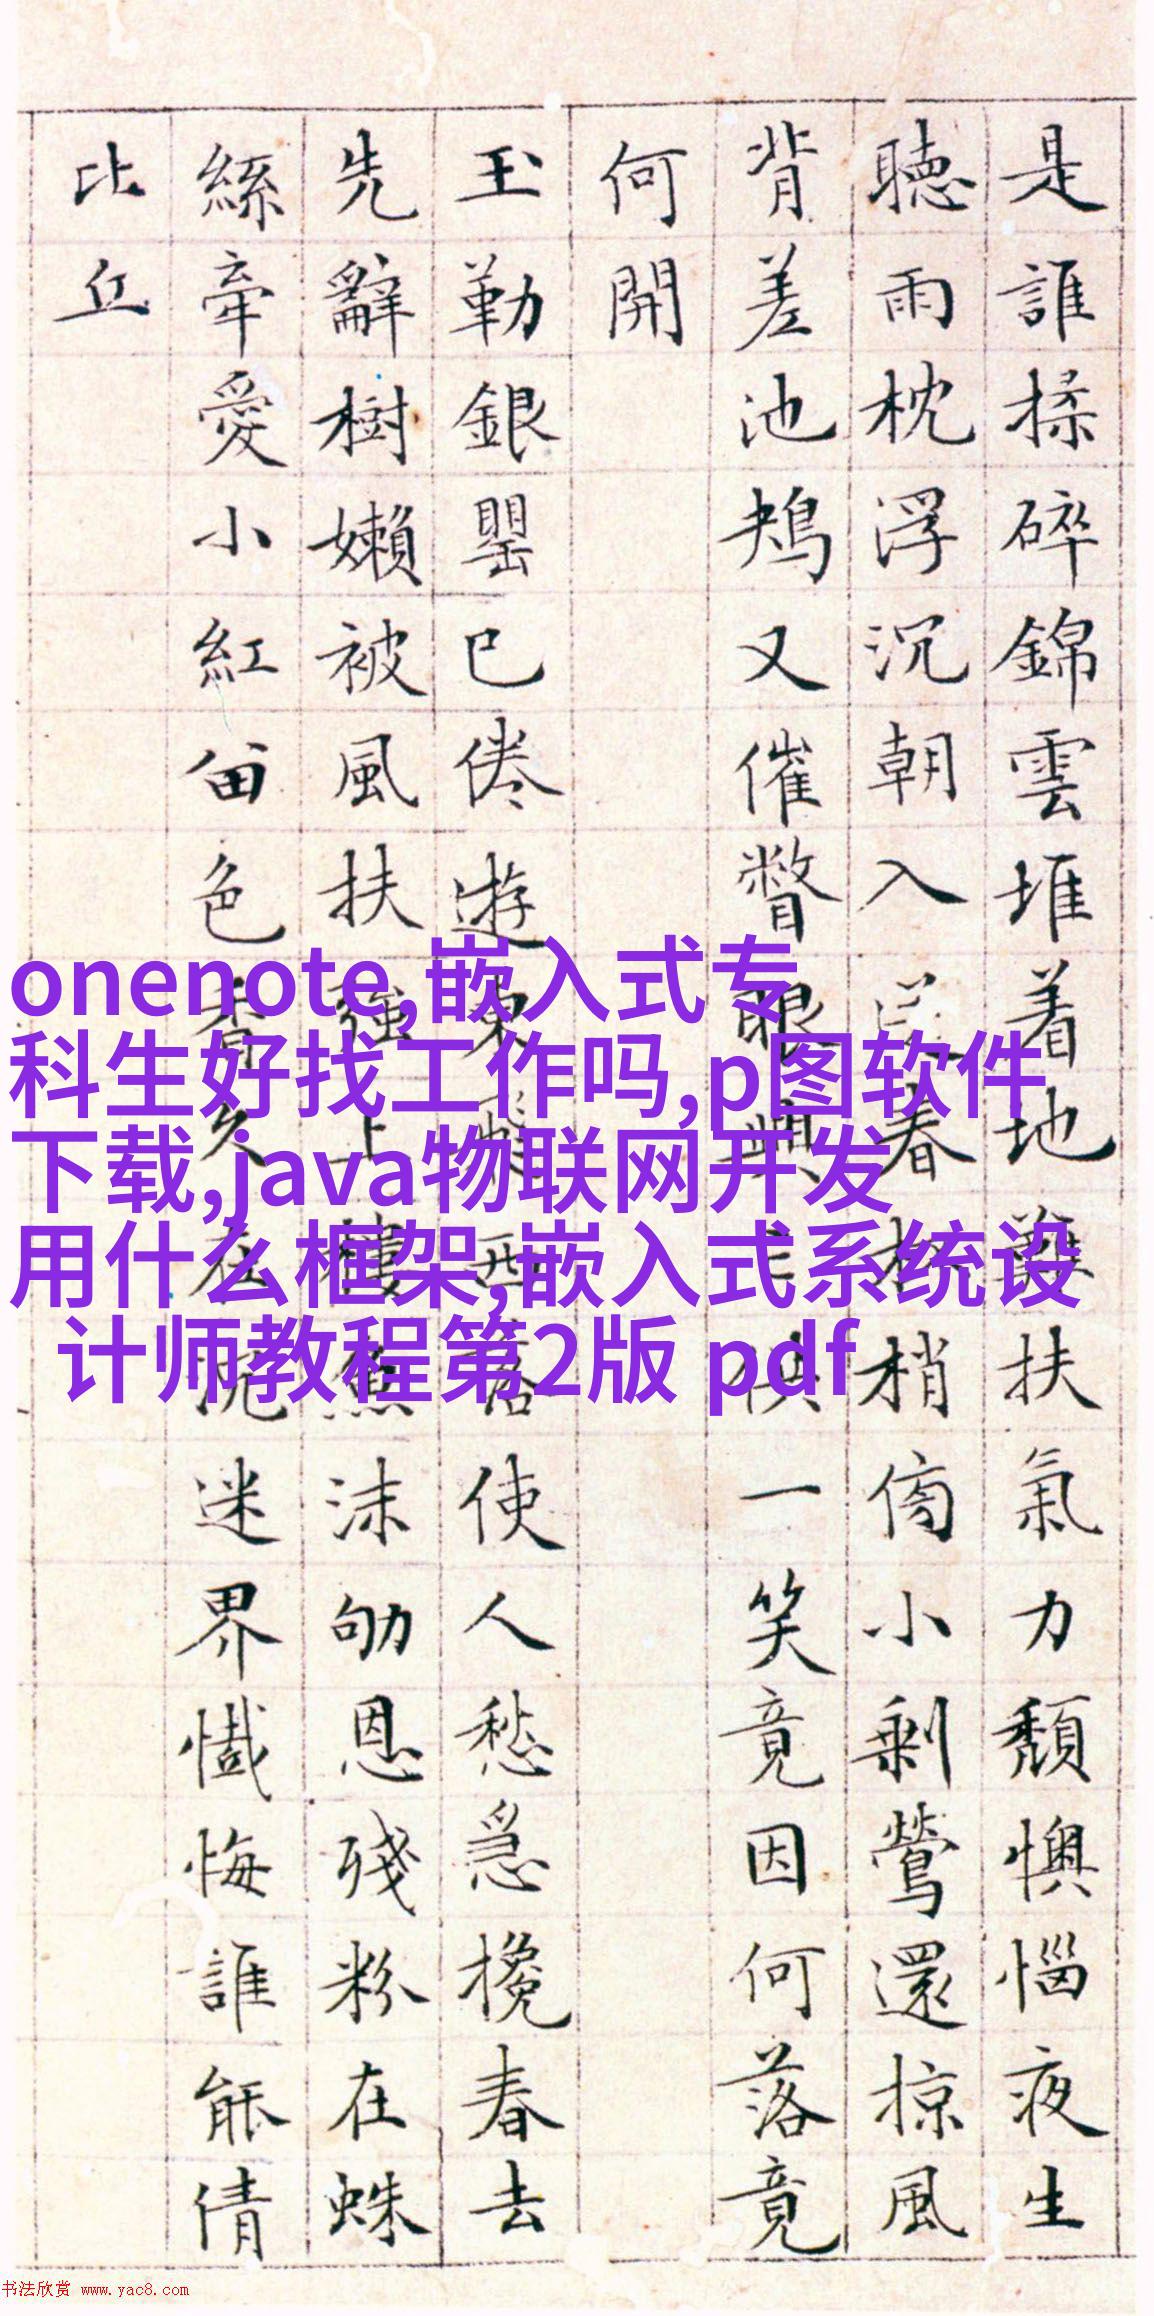 是誰揉碎錦雲堆着地難扶氣力頹懊惱夜生
聴雨枕浮沉朝入春杯梢傍小剩鶯還掠風
背差池鴂又催瞥眼興亡供一笑竟因何落竟
何開
玉勒銀罌已倦遊東飛西落使人愁急攙春去
先辭樹嬾被風扶強上樓魚沫劬恩殘粉在蛛
絲牽愛小紅留色香久在沈迷界懺悔誰能倩
比丘
onenote,嵌入式专
科生好找工作吗,p图软件
下载,java物联网开发
用什么框架,嵌入式系统设
计师教程第2版 pdf
书法欣赏 www.yac8.com